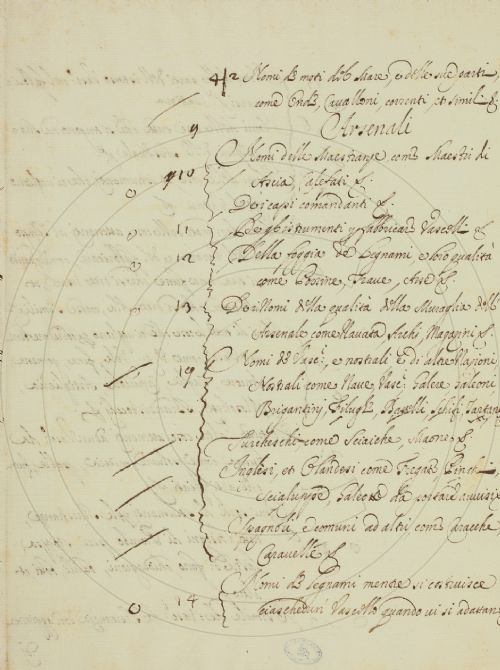 4/2 Nomi de moti del Mare, e delle sue parti,
come Onde, Cavalloni, correnti, et simili &
Arsenali
9
910 Nomi delle Maestranze come Maestri di
Ascia Calefati &.
De i capi comandanti &.
11 De gl'istrumenti p fabbricare Vascelli &
12 Della foggia de Legnami e loro qualità
come Trave, &.
13 De i Nomi della qualità della Muraglia dell'
Arsenale come Navata Archi, Magazini &.
19 Nomi de Vasc.i, e nostrali e di altre Nazioni
Nostrali come Nave Vasc.i Galere Galeoni
Brigantini Filughe, Battelli Schifi Tartane
Turcheschi come Sciaiche, Maone &.
Inglesi, et Olandesi come Fregate
Scialuppe, Galeotte da portare avvisi &
Spagnoli, e comuni ad altri come Caracche,
Caravelle &.
14 Nomi de Legnami mentre si costruisce
ciaschedun Vascello quando vi si adattano